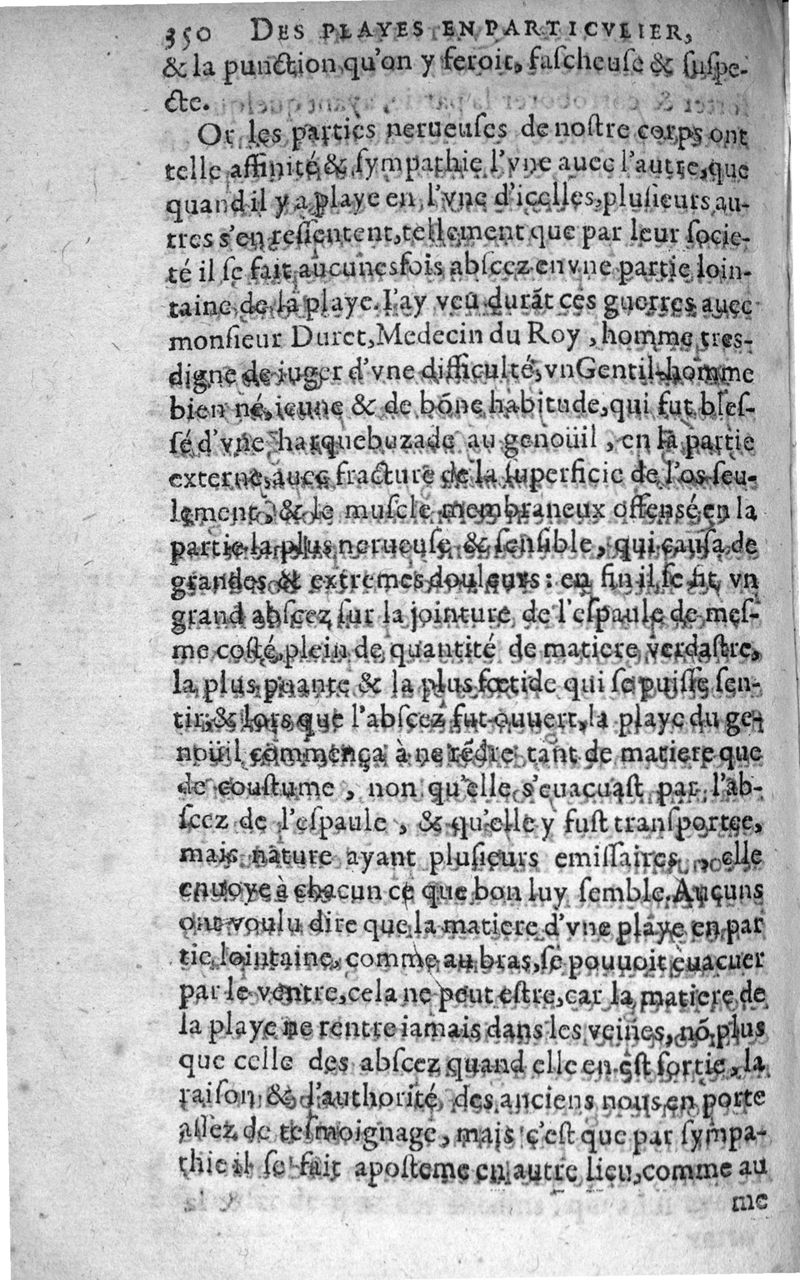 350 DES PLAYES EN PARTICVLIER,
& la punction qu'on y feroit, fascheuse & suspe-
cte.
Or les parties nerueuses de nostre corps ont
telle affinité & sympathie l'vne auec l'autre, que
quand il y a playe en l'vne d'icelles, plusieurs au-
tres s'en ressentent, tellement que par leur socie-
té il se fait aucunesfois abscez en vne partie loin-
taine de la playe. I'ay veu durãt ces guerres auec
monsieur Duret, Medecin du Roy, homme tres-
digne de iuger d'vne difficulté, vn Gentil-homme
bien né, ieune & de bõne habitude, qui fut bles-
sé d'vne harquebuzade au genoüil, en la partie
externe, auec fracture de la superficie de l'os seu-
lement, & le muscle membraneux offensé en la
partie la plus nerueuse & sensible, qui causa de
grandes & extremes douleurs: en fin il se fit vn
grand abscez sur la jointure de l'espaule de mes-
me costé, plein de quantité de matiere verdastre,
la plus puante & la plus fœtide qui se puisse sen-
tir, & lors que l'abscez fut ouuert, la playe du ge-
noüil commença à ne rẽdre tant de matiere que
de coustume, non qu'elle s'euacuast par l'ab-
scez de l'espaule, & qu'elle y fust transportee,
mais nature ayant plusieurs emissaires, elle
enuoye à chacun ce que bon luy semble. Aucuns
ont voulu dire que la matiere d'vne playe en par
tie lointaine, comme au bras, se pouuoit euacuer
par le ventre, cela ne peut estre, car la matiere de
la playe ne rentre iamais dans les veines, nõ plus
que celle des abscez quand elle en est sortie, la
raison & l'authorité des anciens nous en porte
assez de tesmoignage, mais c'est que par sympa-
thie il se fait aposteme en autre lieu, comme au
me